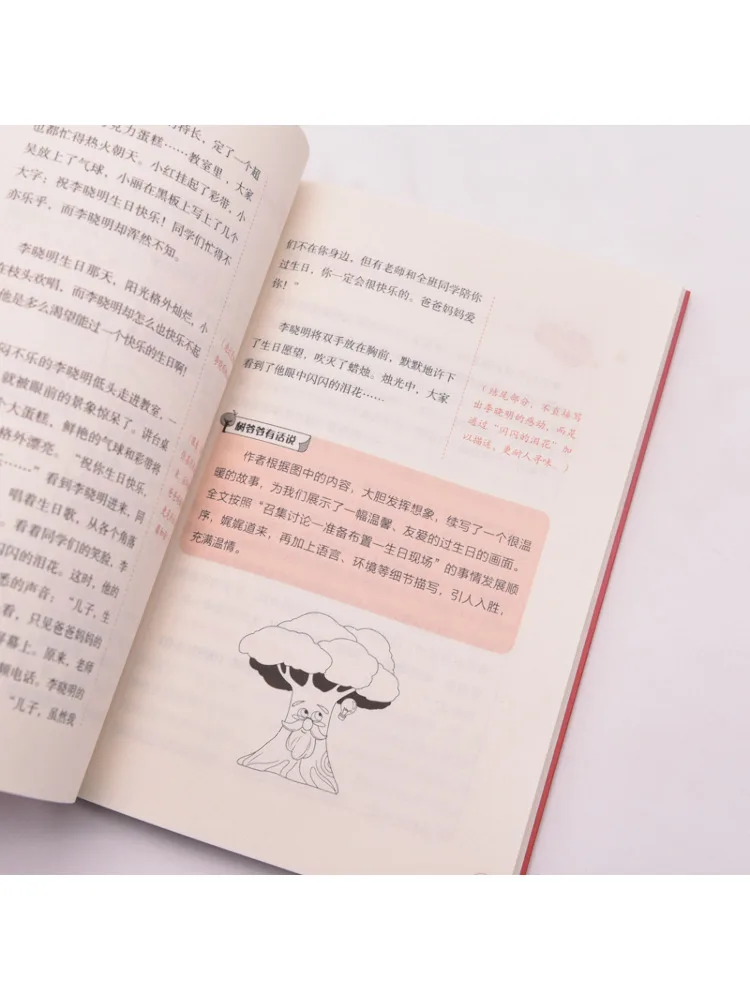 特长，定了一个超
克力蛋糕……教室里，大家
也都忙得热火朝天。小红挂起了彩带，小
吴放上了气球，小丽在黑板上写上了几个
大字：祝李晓明生日快乐！同学们忙得不
亦乐乎，而李晓明却浑然不知。
李晓明生日那天，阳光格外灿烂，小
在枝头欢唱，而李晓明却怎么也快乐不起
他是多么渴望能过一个快乐的生日啊！
闷不乐的李晓明低头走进教室，一
就被眼前的景象惊呆了。讲台桌
个大蛋糕，鲜艳的气球和彩带将
格外漂亮。“祝你生日快乐，
……”看到李晓明进来，同
唱着生日歌，从各个角落
看着同学们的笑脸，李
闪的泪花。这时，他的
悉的声音：“儿子，生
看，只见爸爸妈妈的
屏幕上。原来，老师
频电话。李晓明的
“儿子，虽然我
们不在你身边，但有老师和全班同学陪你
过生日，你一定会很快乐的。爸爸妈妈爱
你！”
李晓明将双手放在胸前，默默地许下
了生日愿望，吹灭了蜡烛。烛光中，大家
看到了他眼中闪闪的泪花……
（结尾部分，不直接写
出李晓明的感动，而是
通过“闪闪的泪花”加
以描述，更耐人寻味。）
树爷爷有话说
作者根据图中的内容，大胆发挥想象，续写了一个很温
暖的故事，为我们展示了一幅温馨、友爱的过生日的画面。
全文按照“召集讨论—准备布置—生日现场”的事情发展顺
序，娓娓道来，再加上语言、环境等细节描写，引人入胜，
充满温情。